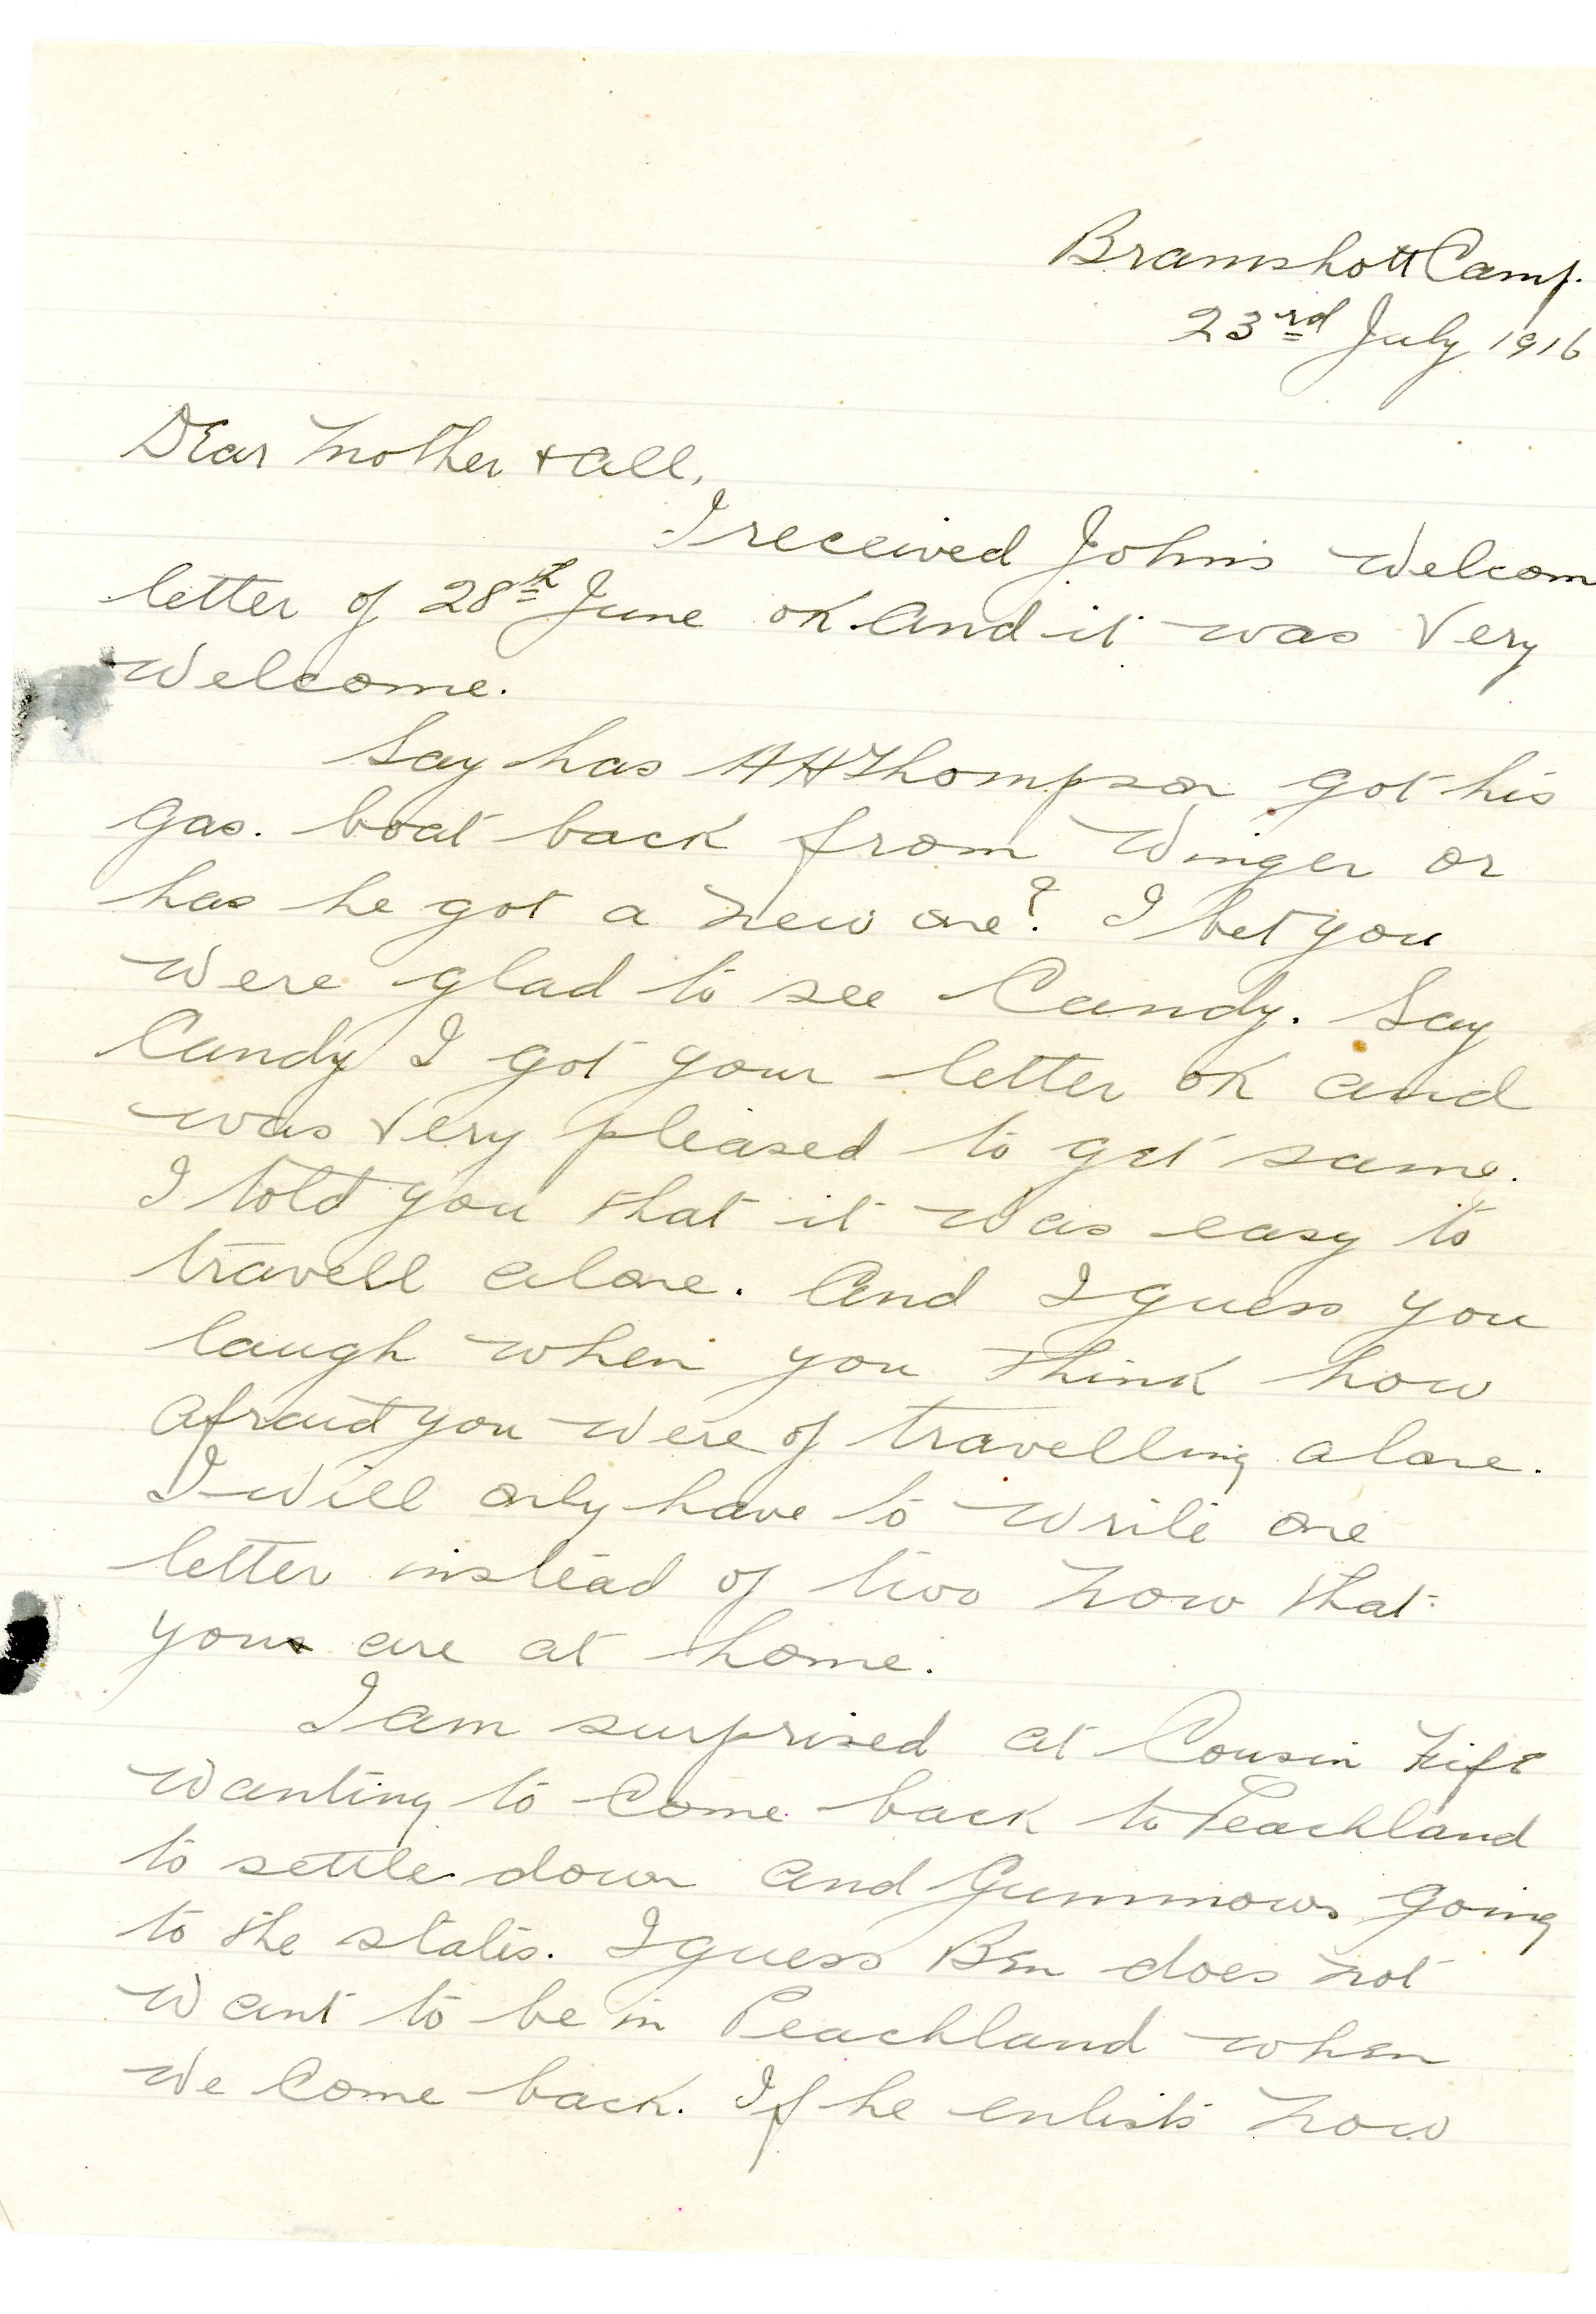 Bramshott Camp.
23rd July 1916
Dear Mother + all,
I received John's welcom
letter of 28th June OK. And it was very
welcome.
Say has HH Thompson got his
gas. boat back from Winger or
has he got a new one? I bet you
were glad to see Candy. Say
Candy I got your letter OK and
was very pleased to get same.
I told you that it was easy to
travell alone. And I guess you
laugh when you think how
afraid you were of travelling alone.
I will only have to write one
letter instead of two now that
you are at home.
I am surprised at Cousin
wanting to come back to Peachland
to settle down and Gummows going
to the states. I guess Ben does not
want to be in Peachland when
we come back. If he enlists now